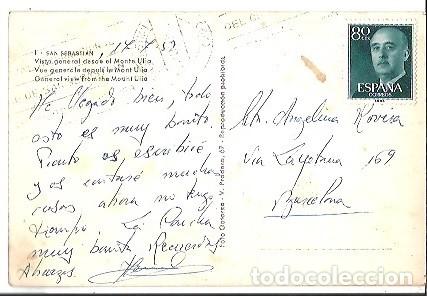 1 - SAN SEBASTIAN
Vista general desde el Monte Ulia
Vue generale depuis le Mont Ulia
General view from the Mount Ulia
He llegado bien, todo
esto es muy bonito
Pronto os escribiré
y os contaré muchas
cosas ahora no tengo
tiempo. La Concha
muy bonita Recuerdos
Abrazos
Foto Galarza - V. Pradera, 67 - Reproducción prohibida
80 CTS
ESPAÑA
CORREOS
Angelina Rovira
Via Layetana 169
Barcelona
todocoleccion.net